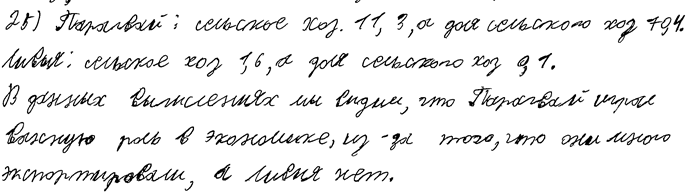 2б) Парагвай: сельское хоз. 11,3, а доля сельского хоз 79,4.
Ливия: сельское хоз 1,6, а доля сельского хоз 0,1.
В данных вычислениях мы видим, что Парагвай играл
важную роль в экономике, из-за того, что они много
экспортировали, а Ливия нет.